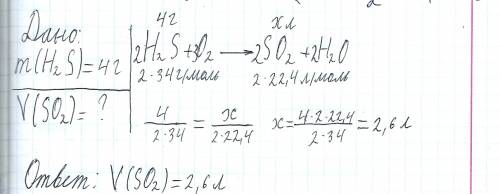 4г х л
Дано:
m(H₂S)=4г
2H₂S+3O₂ → 2SO₂+2H₂O
2·34г/моль 2·22,4 л/моль
V(SO₂)= ?
4/2·34 = x/2·22,4 x= 4·2·22,4/2·34 = 2,6 л
Ответ: V(SO₂)=2,6л